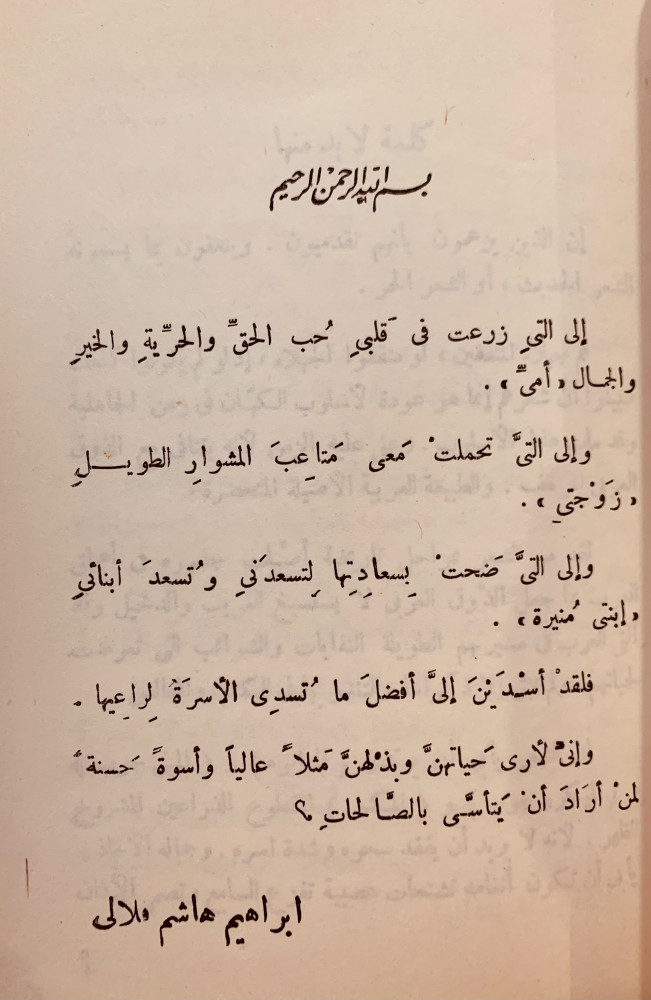 بسم الله الرحمن الرحيم
إلى التي زرعت فى قَلبي حُب الحقِّ والحرِّيةِ والخيرِ
والجمال «أمىِّ» .
وإلى التىَّ تحملتْ مَعى مَتاعِبَ المشوارِ الطويــلِ
«زَوْجتي» .
وإلى التىَّ ضَحتْ بِسعادِتِها لِتسعدَني وتُسعدَ أبنائيِ
«إبنتى مُنيرة» .
فلقدْ أسْدَيْنَ إلىَّ أفضلَ ما تُسدِى الأسرَةُ لِراعِيها .
وإنىِّ لأرى حَياتهنَّ وبذْلهنَّ مَثلاً عالياً وأسوةً حَسنة ً
لمنْ أرَادَ أنْ يَتأسَّى بالصَّالحاتِ ؟
ابراهيم هاشم فلالى